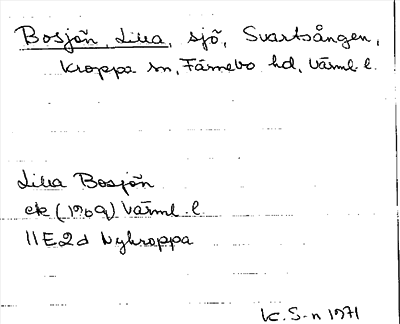 Bosjön, Lilla, sjö, Svartsången,
Kroppa sn, Färnebo hd, Värml. l.
Lilla Bosjön
ek (1909) Värml. l
11E2d Nykroppa
K. S-n 1971